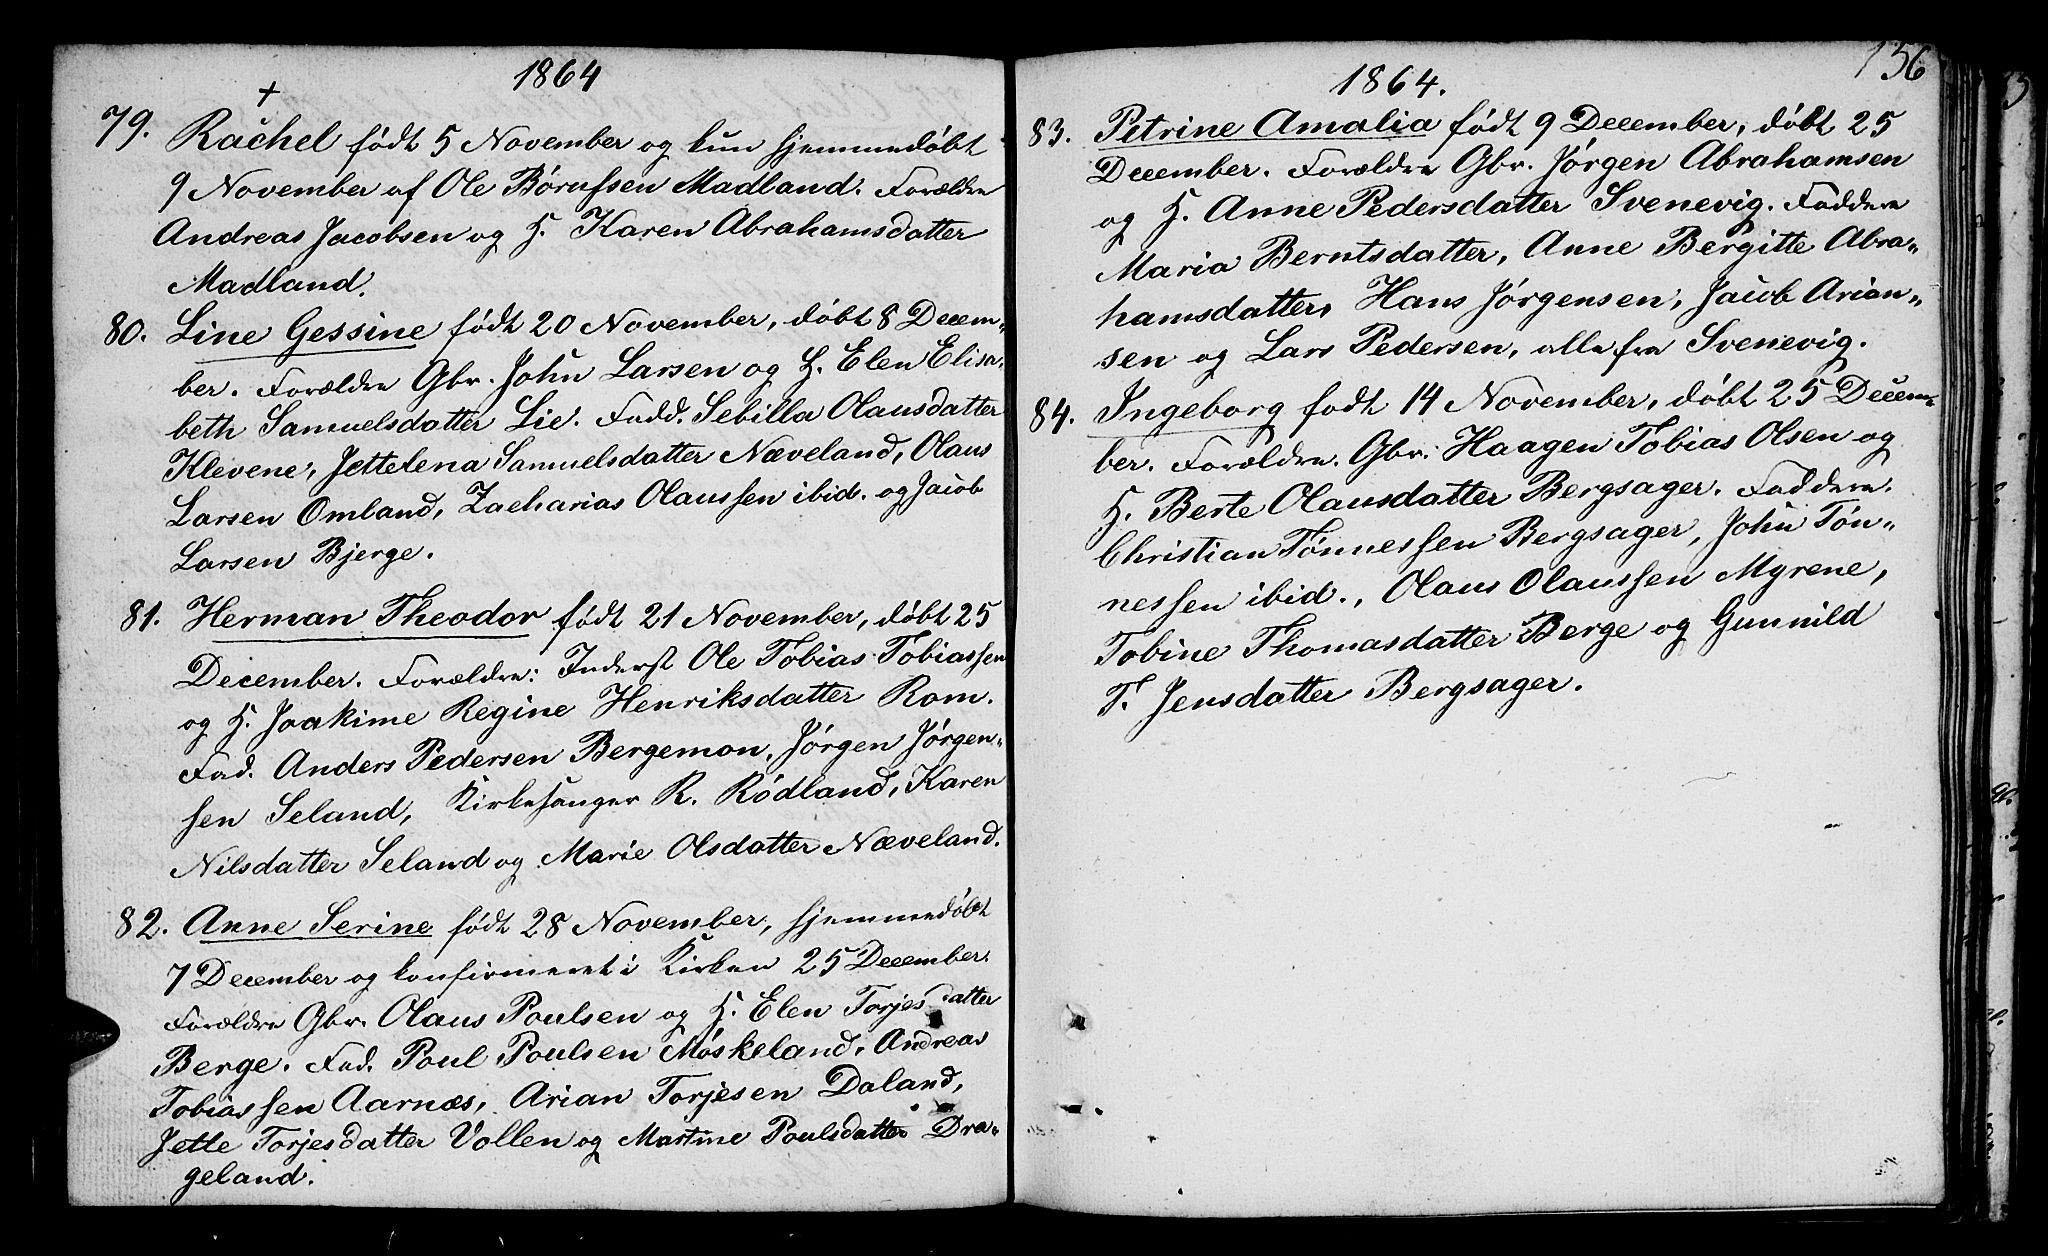 1864
+
79. Rachel født 5 November og kun hjemmedøbt
9 November af Ole Børufsen Madland. Forældre
Andreas Jacobsen og H. Karen Abrahamsdatter
Madland.
80. Line Gessine født 20 November, døbt 8 Decem„
ber. Forældre Gbr. John Larsen og H. Elen Elisa„
beth Samuelsdatter Lie. Fadd. Sebilla Olausdatter
Klevene, Jettelena Samuelsdatter Næveland, Olaus
Larsen Omland, Zacharias Olaussen ibid. og Jacob
Larsen Bjerge.
81. Herman Theodor født 21 November, døbt 25
December. Forældre: Inderst Ole Tobias Tobiassen
og H. Joakime Regine Henriksdatter Rom.
Fad. Anders Pedersen Bergemon, Jørgen Jørgen„
sen Seland, Kirkesanger R. Rödland, Karen
Nilsdatter Seland og Marie Olsdatter Næveland.
82. Anne Serine født 28 November, hjemmedøbt
7 December og konfirmeret i Kirken 25 December.
Forældre Gbr. Olaus Poulsen og H. Elen Torjesdatter
Berge. Fad. Poul Poulsen Møskeland, Andreas
Tobiassen Aarnæs, Arian Torjesen Daland,
Jette Torjesdatter Vollen og Martine Poulsdatter Dra„
geland.
156
1864.
83. Petrine Amalia født 9 December, døbt 25
December. Forældre Gbr. Jørgen Abrahamsen
og H. Anne Pedersdatter Svenevig. Faddere
Maria Berntsdatter, Anne Bergitte Abra„
hamsdatter, Hans Jørgensen, Jacob Arian„
sen og Lars Pedersen, alle fra Svenevig.
84. Ingeborg født 14 November, døbt 25 Decem„
ber. Forældre. Gbr. Haagen Tobias Olsen og
H. Berte Olausdatter Bergsager. Faddere.
Christian Tønnessen Bergsager, John Tøn„
nessen ibid., Olaus Olaussen Myrene,
Tobine Thomasdatter Berge og Gunnild
T. Jensdatter Bergsager.